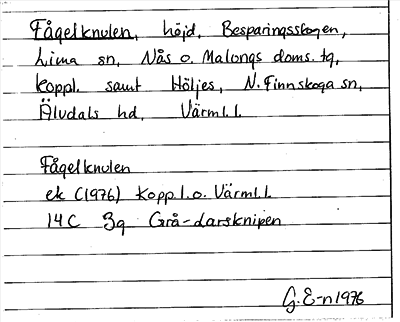 Fågelknulen, höjd, Besparingsskogen,
Lima sn, Nås o. Malungs doms. tg,
Koppl. samt Höljes, N. Finnskoga sn,
Älvdals hd, Värml. l.
Fågelknulen
ek (1976) Kopp. l. o. Värml. l.
14C 3g Grå-darsknipen
G. E-n 1976